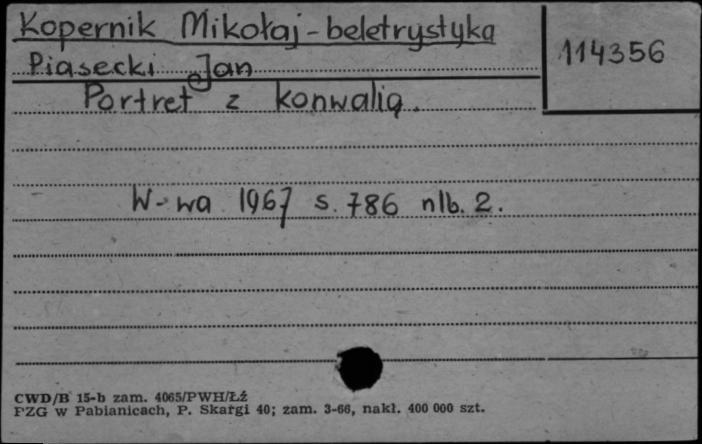 Kopernik Mikołaj - beletrystyka
114356
Piasecki Jan
Portret z konwalią.
W-wa 1967 s. 786 nlb. 2.
CWD/B 15-b zam. 4065/PWH/Łź
PZG w Pabianicach, P. Skargi 40; zam. 3-66, nakł. 400 000 szt.